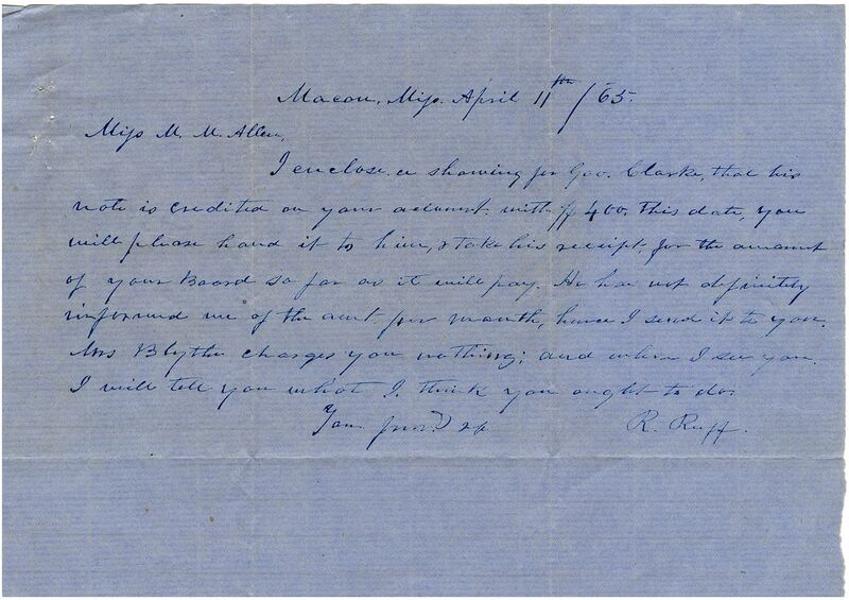 Macon, Miss. April 11th /65.
Miss M. M. Allen,
I enclose a showing for Gov. Clarke, that his
note is credited on your account with $400. this date, you
will please hand it to him, & take his receipt, for the amount
of your Board so far as it will pay. He has not definitely
informed me of the amt per month, hence I send it to you.
Mrs Blythe charges you nothing; and when I see you
I will tell you what I think you ought to do.
Your &c R. Ruff.